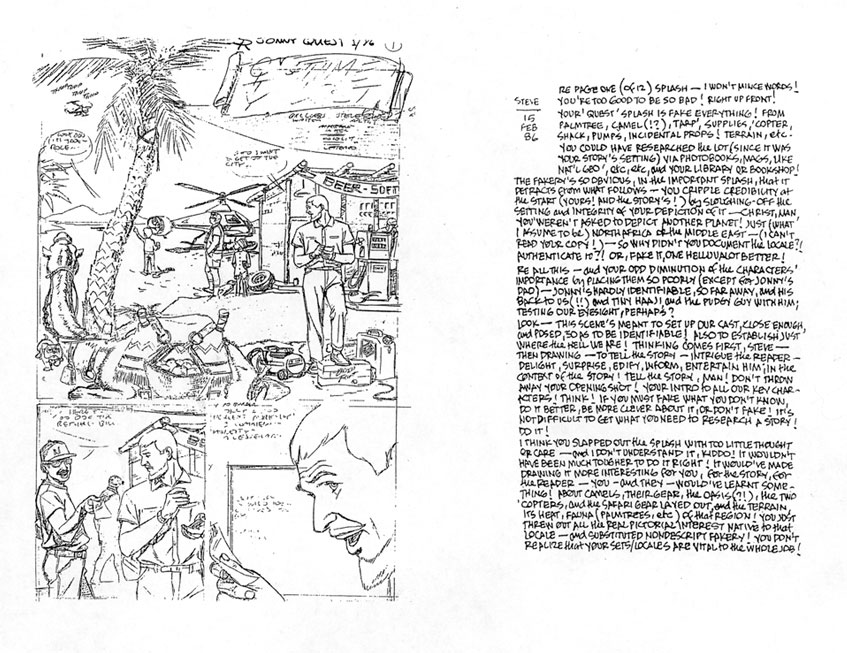 JONNY QUEST 2/86 1
BEER-SOFT
STEVE
15
FEB
86
RE PAGE ONE (of 12) SPLASH — I WON'T MINCE WORDS!
YOU'RE TOO GOOD TO BE SO BAD! RIGHT UP FRONT!
YOUR 'QUEST' SPLASH IS FAKE EVERYTHING! FROM
PALMTREE, CAMEL (!?), TARP, SUPPLIES, 'COPTER,
SHACK, PUMPS, INCIDENTAL PROPS! TERRAIN, etc.
YOU COULD HAVE RESEARCHED the LOT (SINCE IT WAS
YOUR STORY'S SETTING) VIA PHOTOBOOKS, MAGS, LIKE
NAT'L GEO', etc, etc, and YOUR LIBRARY OR BOOKSHOP!
THE FAKERY'S SO OBVIOUS, IN the IMPORTANT SPLASH, that IT
DETRACTS FROM WHAT FOLLOWS — YOU CRIPPLE CREDIBILITY AT
the START (YOURS! AND the STORY'S!) by SLOUGHING-OFF the
SETTING and INTEGRITY OF YOUR DEPICTION OF IT — CHRIST, MAN
YOU WEREN'T ASKED TO DEPICT ANOTHER PLANET! JUST (WHAT
I ASSUME TO be) NORTH AFRICA OR the MIDDLE EAST — (I CAN'T
READ YOUR COPY!) — SO WHY DIDN'T YOU DOCUMENT the LOCALE?!
AUTHENTICATE IT?! OR, FAKE IT, ONE HELLUVALOT BETTER!
RE ALL THIS — and YOUR ODD DIMINUTION of the CHARACTERS'
IMPORTANCE by PLACING THEM SO POORLY (EXCEPT for JONNY'S
DAD) — JONNY'S HARDLY IDENTIFIABLE, SO FAR AWAY, and HIS
BACK TO US (!!) and TINY HAAJI and the PUDGY GUY WITH HIM;
TESTING OUR EYESIGHT, PERHAPS?
LOOK — THIS SCENE'S MEANT TO SET UP OUR CAST, CLOSE ENOUGH,
and POSED, SO AS TO BE IDENTIFIABLE! ALSO TO ESTABLISH JUST
WHERE the HELL WE ARE! THINKING COMES FIRST, STEVE —
THEN DRAWING — TO TELL the STORY — INTRIGUE the READER —
DELIGHT, SURPRISE, EDIFY, INFORM, ENTERTAIN HIM; IN the
CONTEXT of the STORY! TELL the STORY, MAN! DON'T THROW
AWAY YOUR OPENING SHOT! YOUR INTRO to ALL OUR KEY CHAR-
ACTERS! THINK! IF YOU MUST FAKE WHAT YOU DON'T KNOW,
DO IT BETTER, BE MORE CLEVER ABOUT IT, OR DON'T FAKE! IT'S
NOT DIFFICULT TO GET WHAT YOU NEED TO RESEARCH A STORY!
DO IT!
I THINK YOU SLAPPED OUT the SPLASH WITH TOO LITTLE THOUGHT
OR CARE — and I DON'T UNDERSTAND IT, KIDDO! IT WOULDN'T
HAVE BEEN MUCH TOUGHER TO DO IT RIGHT! IT WOULD'VE MADE
DRAWING IT MORE INTERESTING for YOU, for the STORY, for
the READER — YOU — and THEY — WOULD'VE LEARNT SOME-
THING! ABOUT CAMELS, THEIR GEAR, the OASIS (?!), the TWO
'COPTERS, and the SAFARI GEAR LAYED OUT, and the TERRAIN,
ITS HEAT, FAUNA (PALMTREES, etc) of that REGION! YOU JUST
THREW OUT ALL the REAL PICTORIAL INTEREST NATIVE to that
LOCALE — and SUBSTITUTED NONDESCRIPT FAKERY! YOU DON'T
REALIZE that YOUR SETS/LOCALES ARE VITAL to the WHOLE JOB!